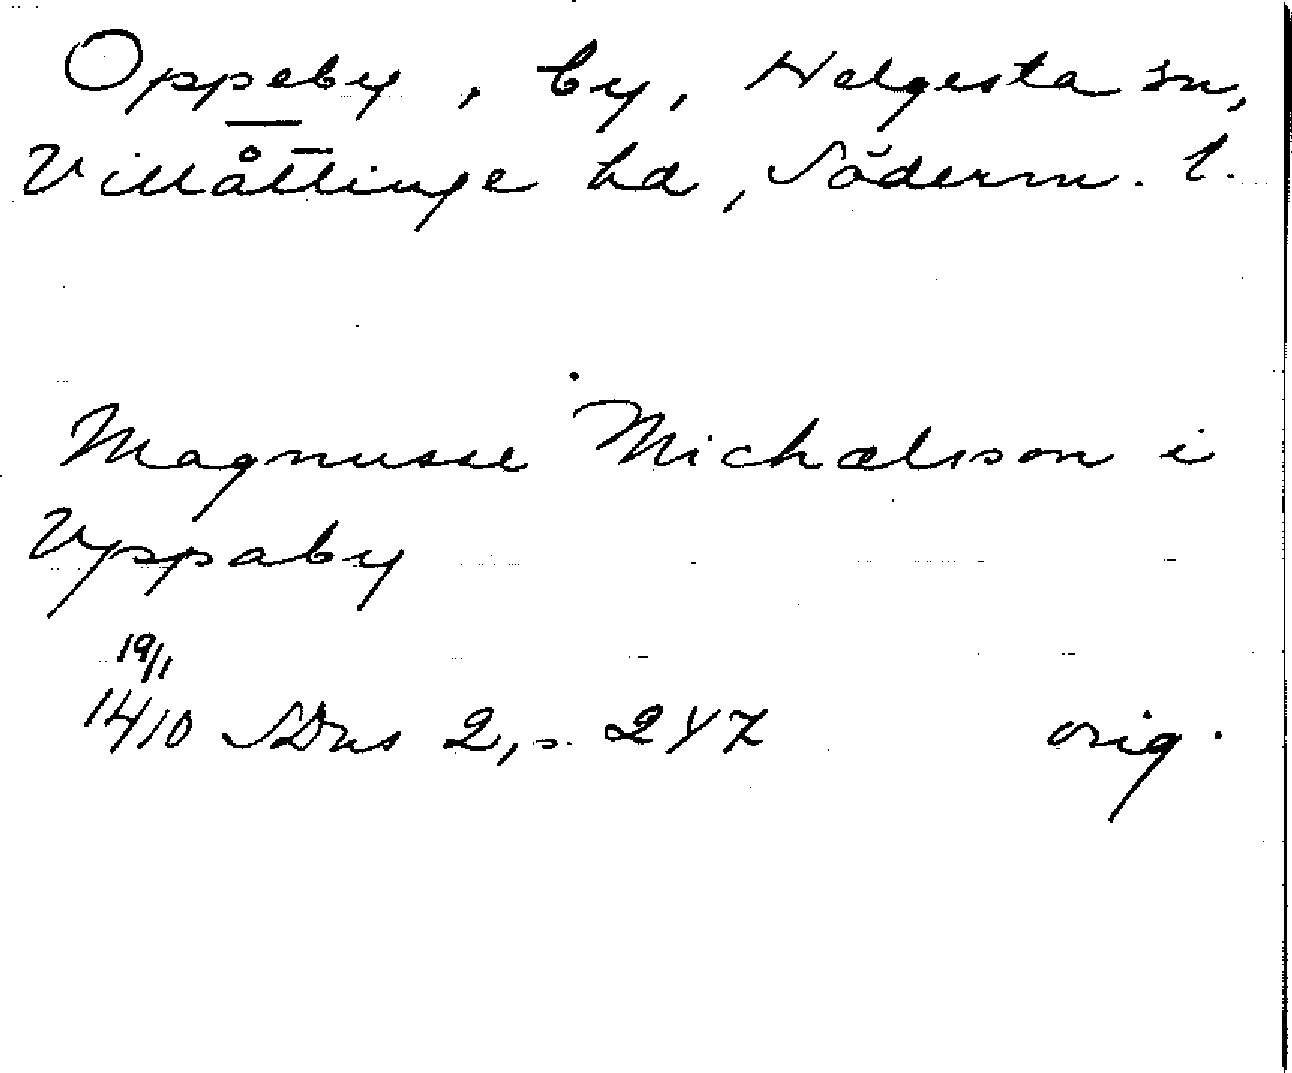 Oppeby, by, Helgesta sn,
Villåttinge hd, Söderm. l.
Magnusse Michælsson i
Vppaby
19/1
1410 SDns 2, s. 247 orig.